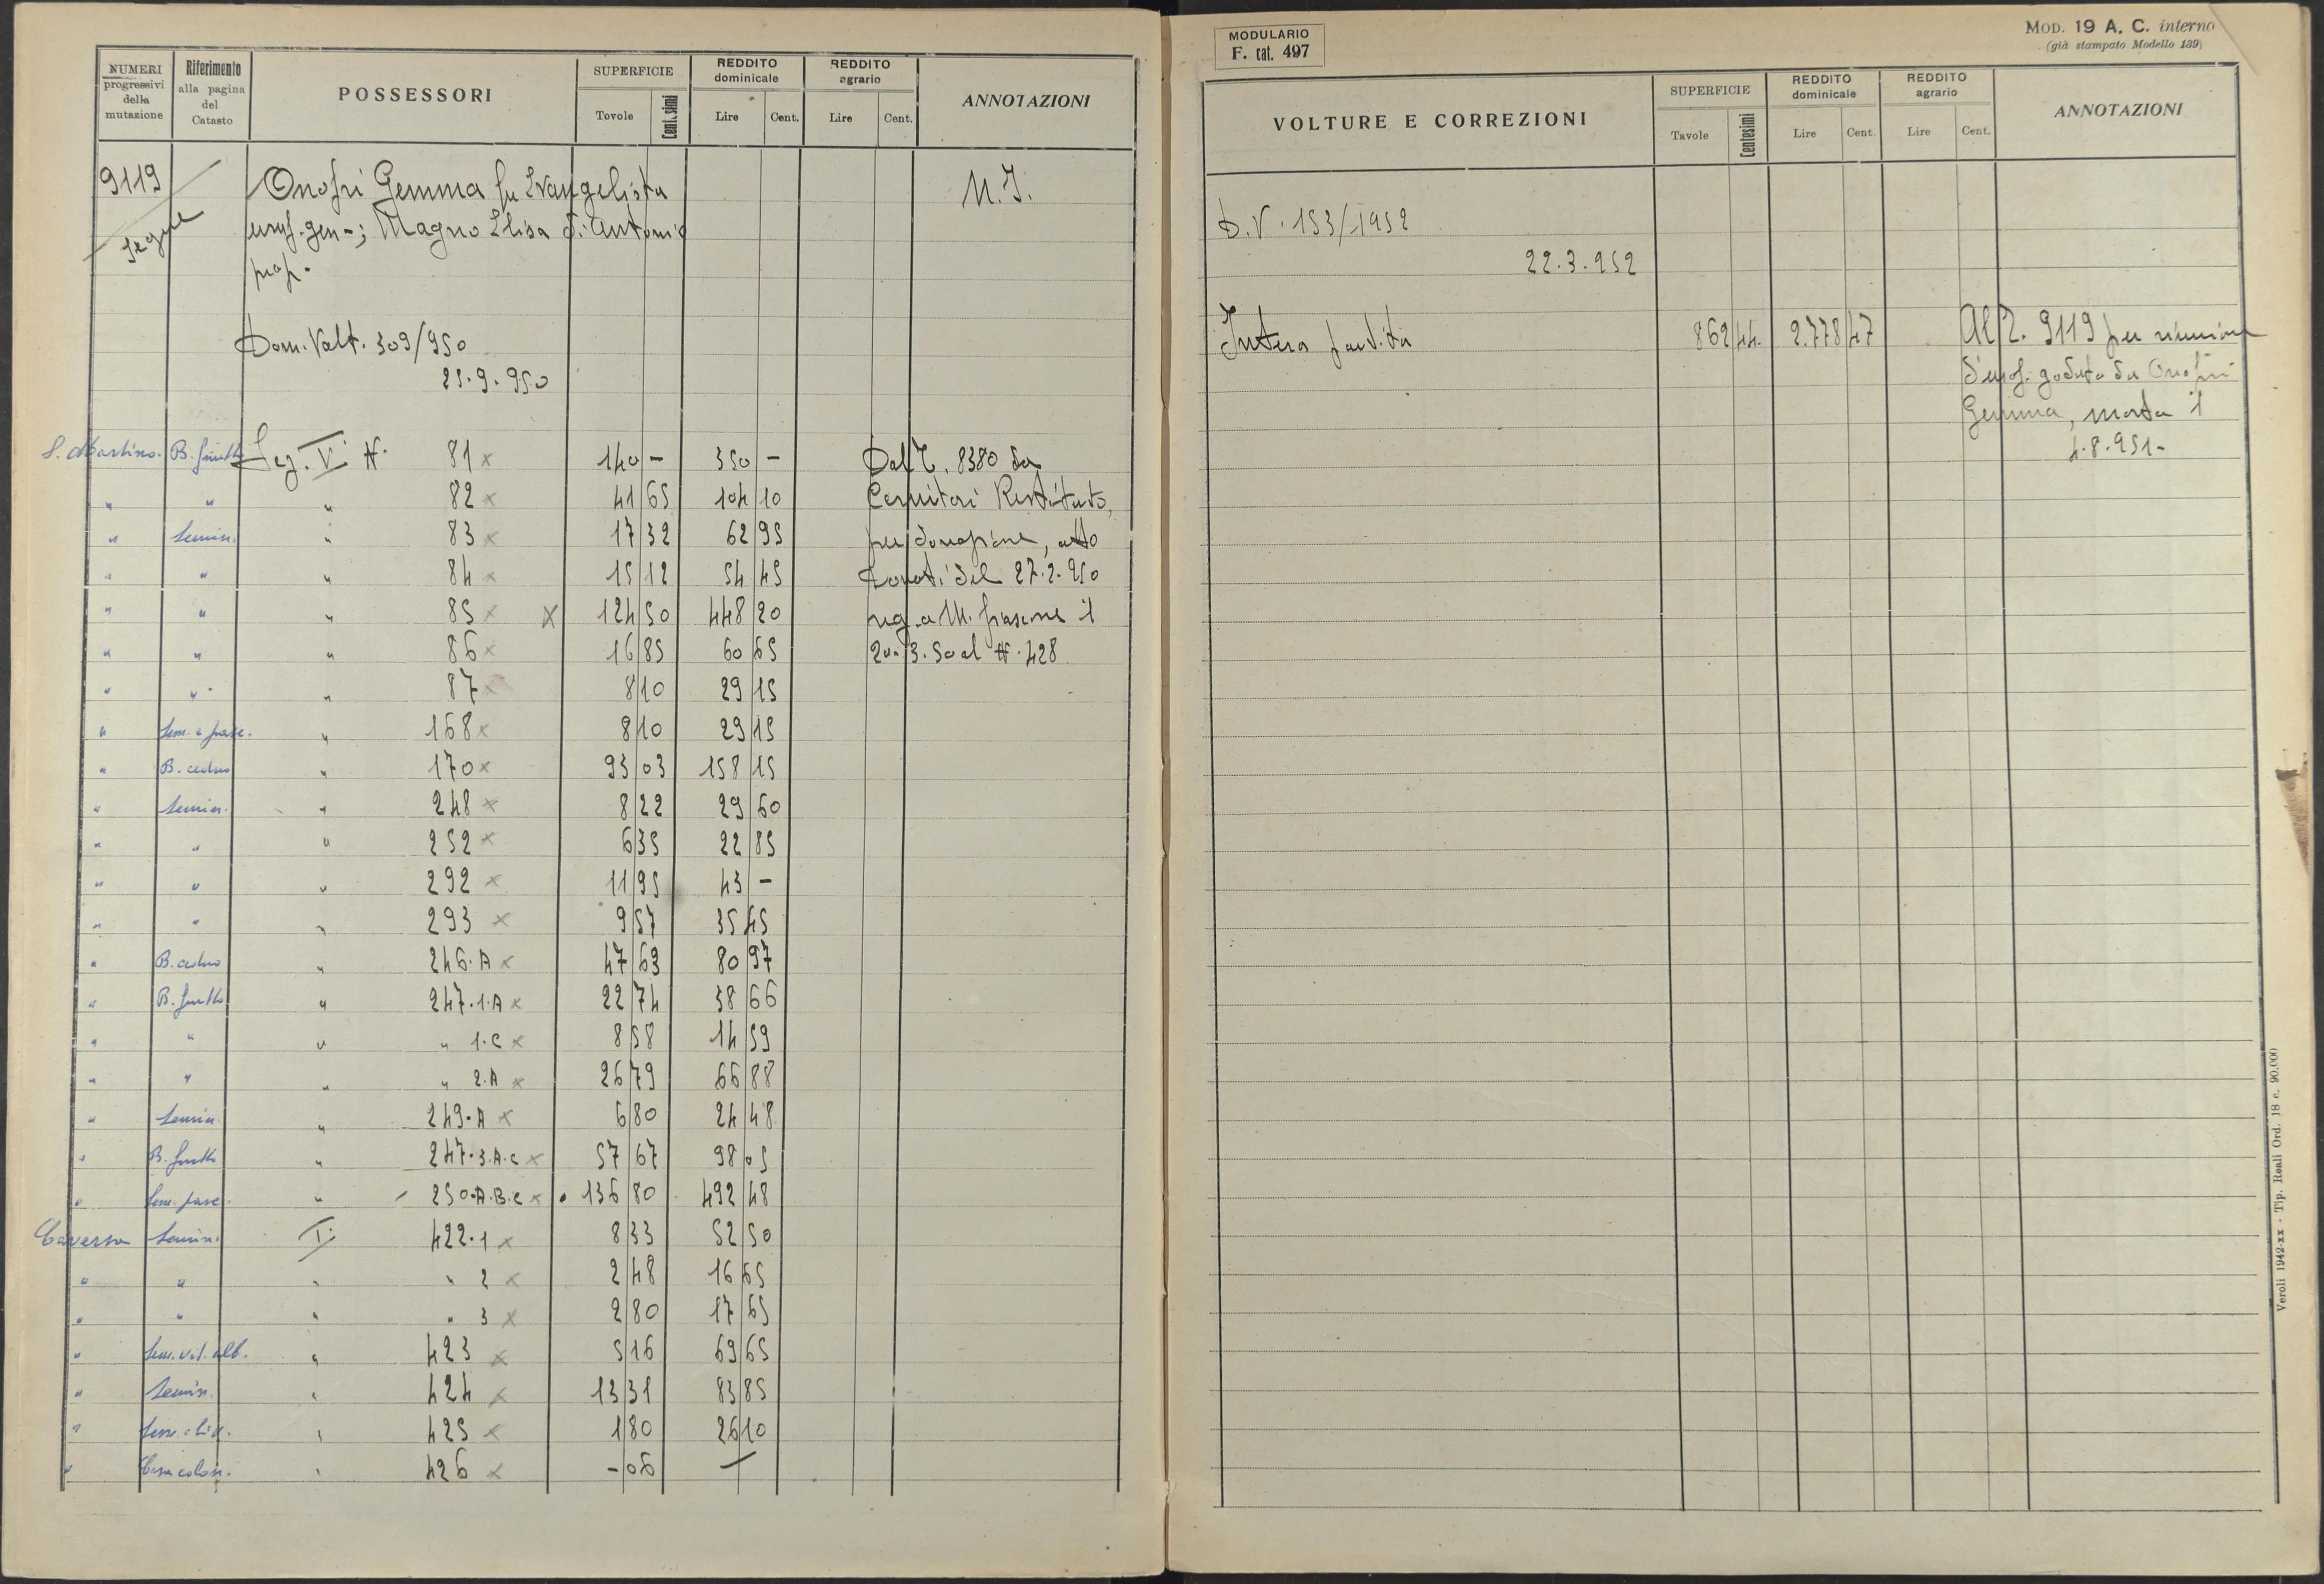 NUMERI progressivi della mutazione | Riferimento alla pagina del Catasto | POSSESSORI | SUPERFICIE Tavole Centesimi | REDDITO dominicale Lire Cent. | REDDITO agrario Lire Cent. | ANNOTAZIONI
9119 Onofri Gemma fu Evangelista M. I.
segue usuf. gen-; Magno Elisa di Antonio
prop.
Dom. Volt. 309/950
21.9.950
S. Martino B. frutto Sez. V N. 81 x 140 - 350 - Dal P. 8380 da
" " " 82 x 41 65 104 10 Restituto,
" Semin. " 83 x 17 32 62 95 per donazione, atto
" " " 84 x 15 12 54 45 Donati del 27.2.950
" " " 85 x X 124 50 448 20 reg. a M. frascone il
" " " 86 x 16 85 60 65 20.3.50 al N. 428
" " " 87 x 8 10 29 15
" Sem. e pasc. " 168 x 8 10 29 15
" B. ceduo " 170 x 93 03 158 15
" Semin. " 248 x 8 22 29 60
" " " 252 x 6 35 22 85
" " " 292 x 11 95 43 -
" " " 293 x 9 57 35 45
" B. ceduo " 246.A x 47 63 80 97
" B. frutto " 247.1.A x 22 74 38 66
" " " " 1.C x 8 58 14 59
" " " " 2.A x 26 79 66 88
" Semin. " 249.A x 6 80 24 48
" B. frutto " 247.3.A.C x 57 67 98 05
" Sem. pasc. " 250.A.B.C x 136 80 492 48
Caversa Semin. I 422.1 x 8 33 52 50
" " " " 2 x 2 48 16 65
" " " " 3 x 2 80 17 65
" Sem. vit. alb. " 423 x 5 16 69 65
" Semin. " 424 x 13 31 83 85
" Sem. oliv. " 425 x 1 80 26 10
" Casa colon. " 426 x - 06 -
MODULARIO
F. cat. 497
MOD. 19 A. C. interno
(già stampato Modello 139)
VOLTURE E CORREZIONI | SUPERFICIE Tavole Centesimi | REDDITO dominicale Lire Cent. | REDDITO agrario Lire Cent. | ANNOTAZIONI
D. V. 153/1952
22.3.952
Intera partita 862 44. 2.778 47 Al P. 9119 per riunione
d'usuf. goduto da Onofri
Gemma, morta il
4.8.951-
Veroli 1942-xx - Tip. Reali Ord. 18 c. 90.000